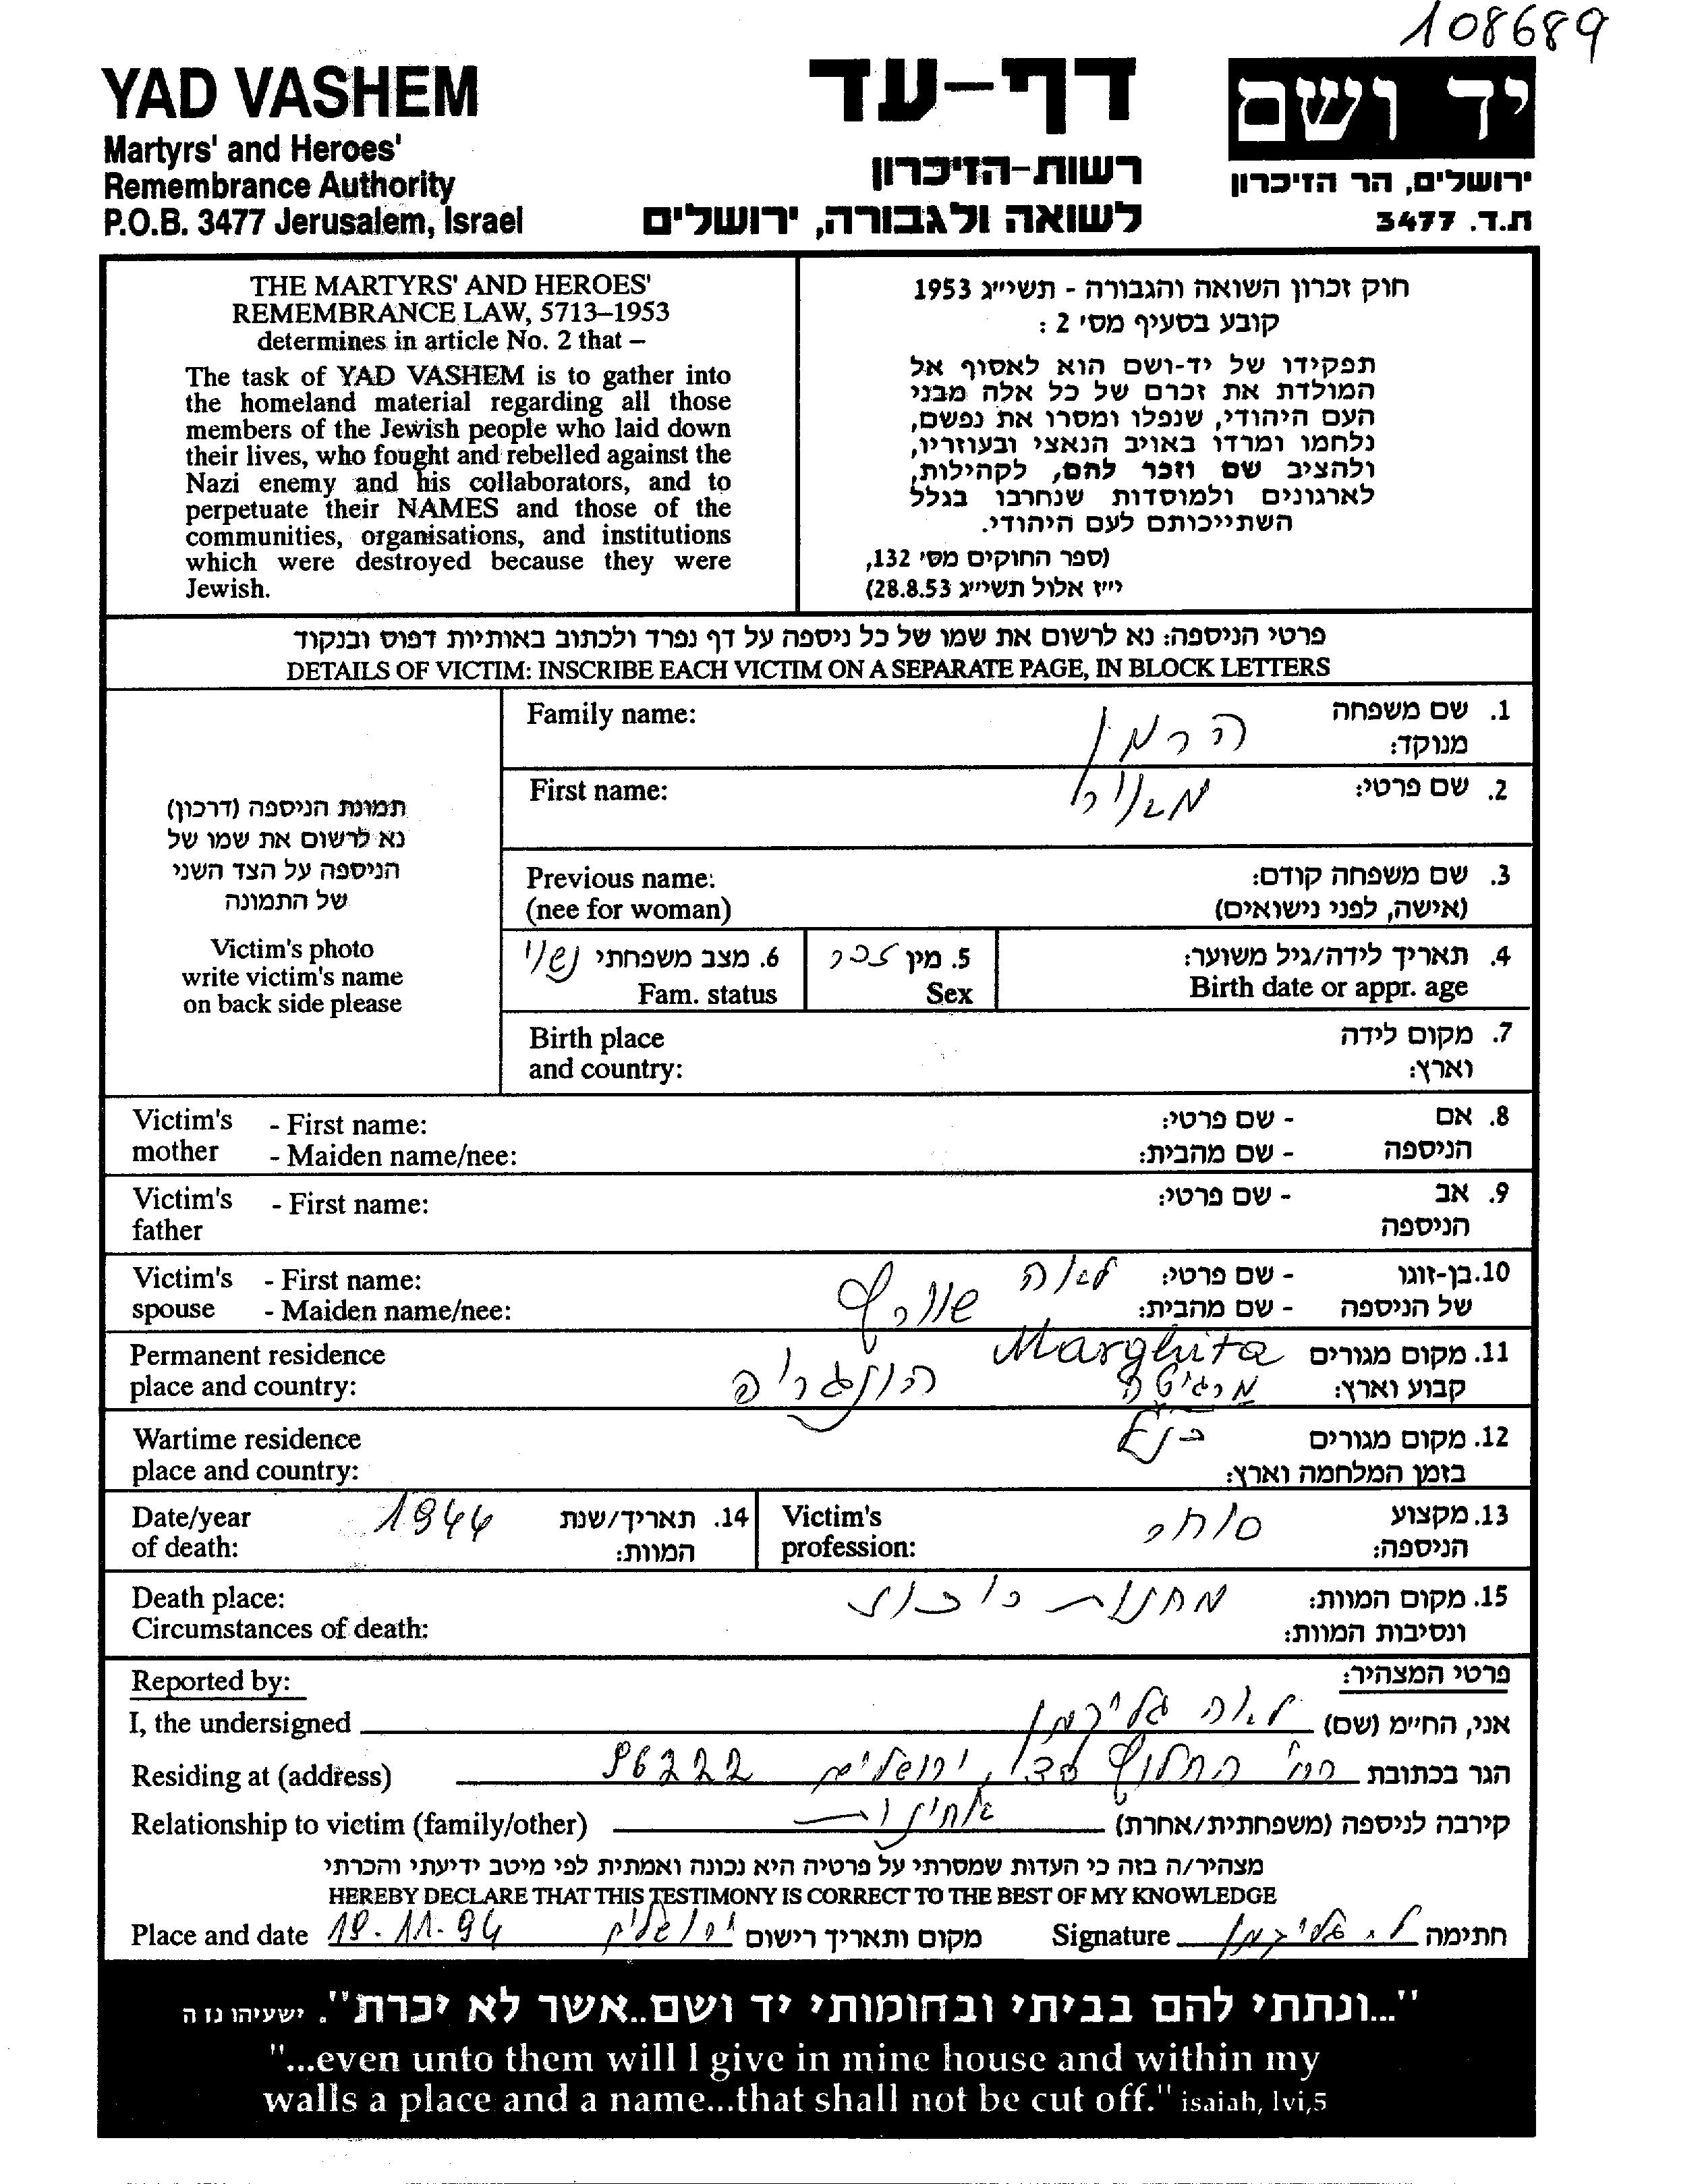 108689
YAD VASHEM
Martyrs' and Heroes'
Remembrance Authority
P.O.B. 3477 Jerusalem, Israel
דף-עד
רשות-הזיכרון
לשואה ולגבורה, ירושלים
יד ושם
ירושלים, הר הזיכרון
ת.ד. 3477
THE MARTYRS' AND HEROES'
REMEMBRANCE LAW, 5713–1953
determines in article No. 2 that –
The task of YAD VASHEM is to gather into
the homeland material regarding all those
members of the Jewish people who laid down
their lives, who fought and rebelled against the
Nazi enemy and his collaborators, and to
perpetuate their NAMES and those of the
communities, organisations, and institutions
which were destroyed because they were
Jewish.
חוק זכרון השואה והגבורה - תשי״ג 1953
קובע בסעיף מס׳ 2 :
תפקידו של יד-ושם הוא לאסוף אל
המולדת את זכרם של כל אלה מבני
העם היהודי, שנפלו ומסרו את נפשם,
נלחמו ומרדו באויב הנאצי ובעוזריו,
ולהציב שם וזכר להם, לקהילות,
לארגונים ולמוסדות שנחרבו בגלל
השתייכותם לעם היהודי.
(ספר החוקים מס׳ 132,
י״ז אלול תשי״ג 28.8.53)
פרטי הניספה: נא לרשום את שמו של כל ניספה על דף נפרד ולכתוב באותיות דפוס ובנקוד
DETAILS OF VICTIM: INSCRIBE EACH VICTIM ON A SEPARATE PAGE, IN BLOCK LETTERS
תמונת הניספה (דרכון)
נא לרשום את שמו של
הניספה על הצד השני
של התמונה
Victim's photo
write victim's name
on back side please
1. שם משפחה הרמן Family name:
מנוקד:
2. שם פרטי: מאיר First name:
3. שם משפחה קודם: Previous name:
(אישה, לפני נישואים) (nee for woman)
4. תאריך לידה/גיל משוער: 5. מין זכר 6. מצב משפחתי נשוי
Birth date or appr. age Sex Fam. status
7. מקום לידה Birth place
וארץ: and country:
8. אם - שם פרטי: Victim's - First name:
הניספה - שם מהבית: mother - Maiden name/nee:
9. אב - שם פרטי: Victim's - First name:
הניספה father
10. בן-זוגו - שם פרטי: לאה Victim's - First name:
של הניספה - שם מהבית: שורף spouse - Maiden name/nee:
11. מקום מגורים Marghita Permanent residence
קבוע וארץ: מרגיטה הונגריה place and country:
12. מקום מגורים כנ״ל Wartime residence
בזמן המלחמה וארץ: place and country:
13. מקצוע סוחר Victim's 14. תאריך/שנת 1944 Date/year
הניספה: profession: המוות: of death:
15. מקום המוות: מחנות ריכוז Death place:
ונסיבות המוות: Circumstances of death:
פרטי המצהיר: Reported by:
אני, הח״מ (שם) לאה גליקמן I, the undersigned
הגר בכתובת רח׳ החלוץ ירושלים 96222 Residing at (address)
קירבה לניספה (משפחתית/אחרת) Relationship to victim (family/other)
מצהיר/ה בזה כי העדות שמסרתי על פרטיה היא נכונה ואמתית לפי מיטב ידיעתי והכרתי
HEREBY DECLARE THAT THIS TESTIMONY IS CORRECT TO THE BEST OF MY KNOWLEDGE
Place and date 19.11.94 ירושלים מקום ותאריך רישום Signature ל. גליקמן חתימה
"...ונתתי להם בביתי ובחומותי יד ושם..אשר לא יכרת". ישעיהו נו ה
"...even unto them will I give in mine house and within my
walls a place and a name...that shall not be cut off." isaiah, lvi,5